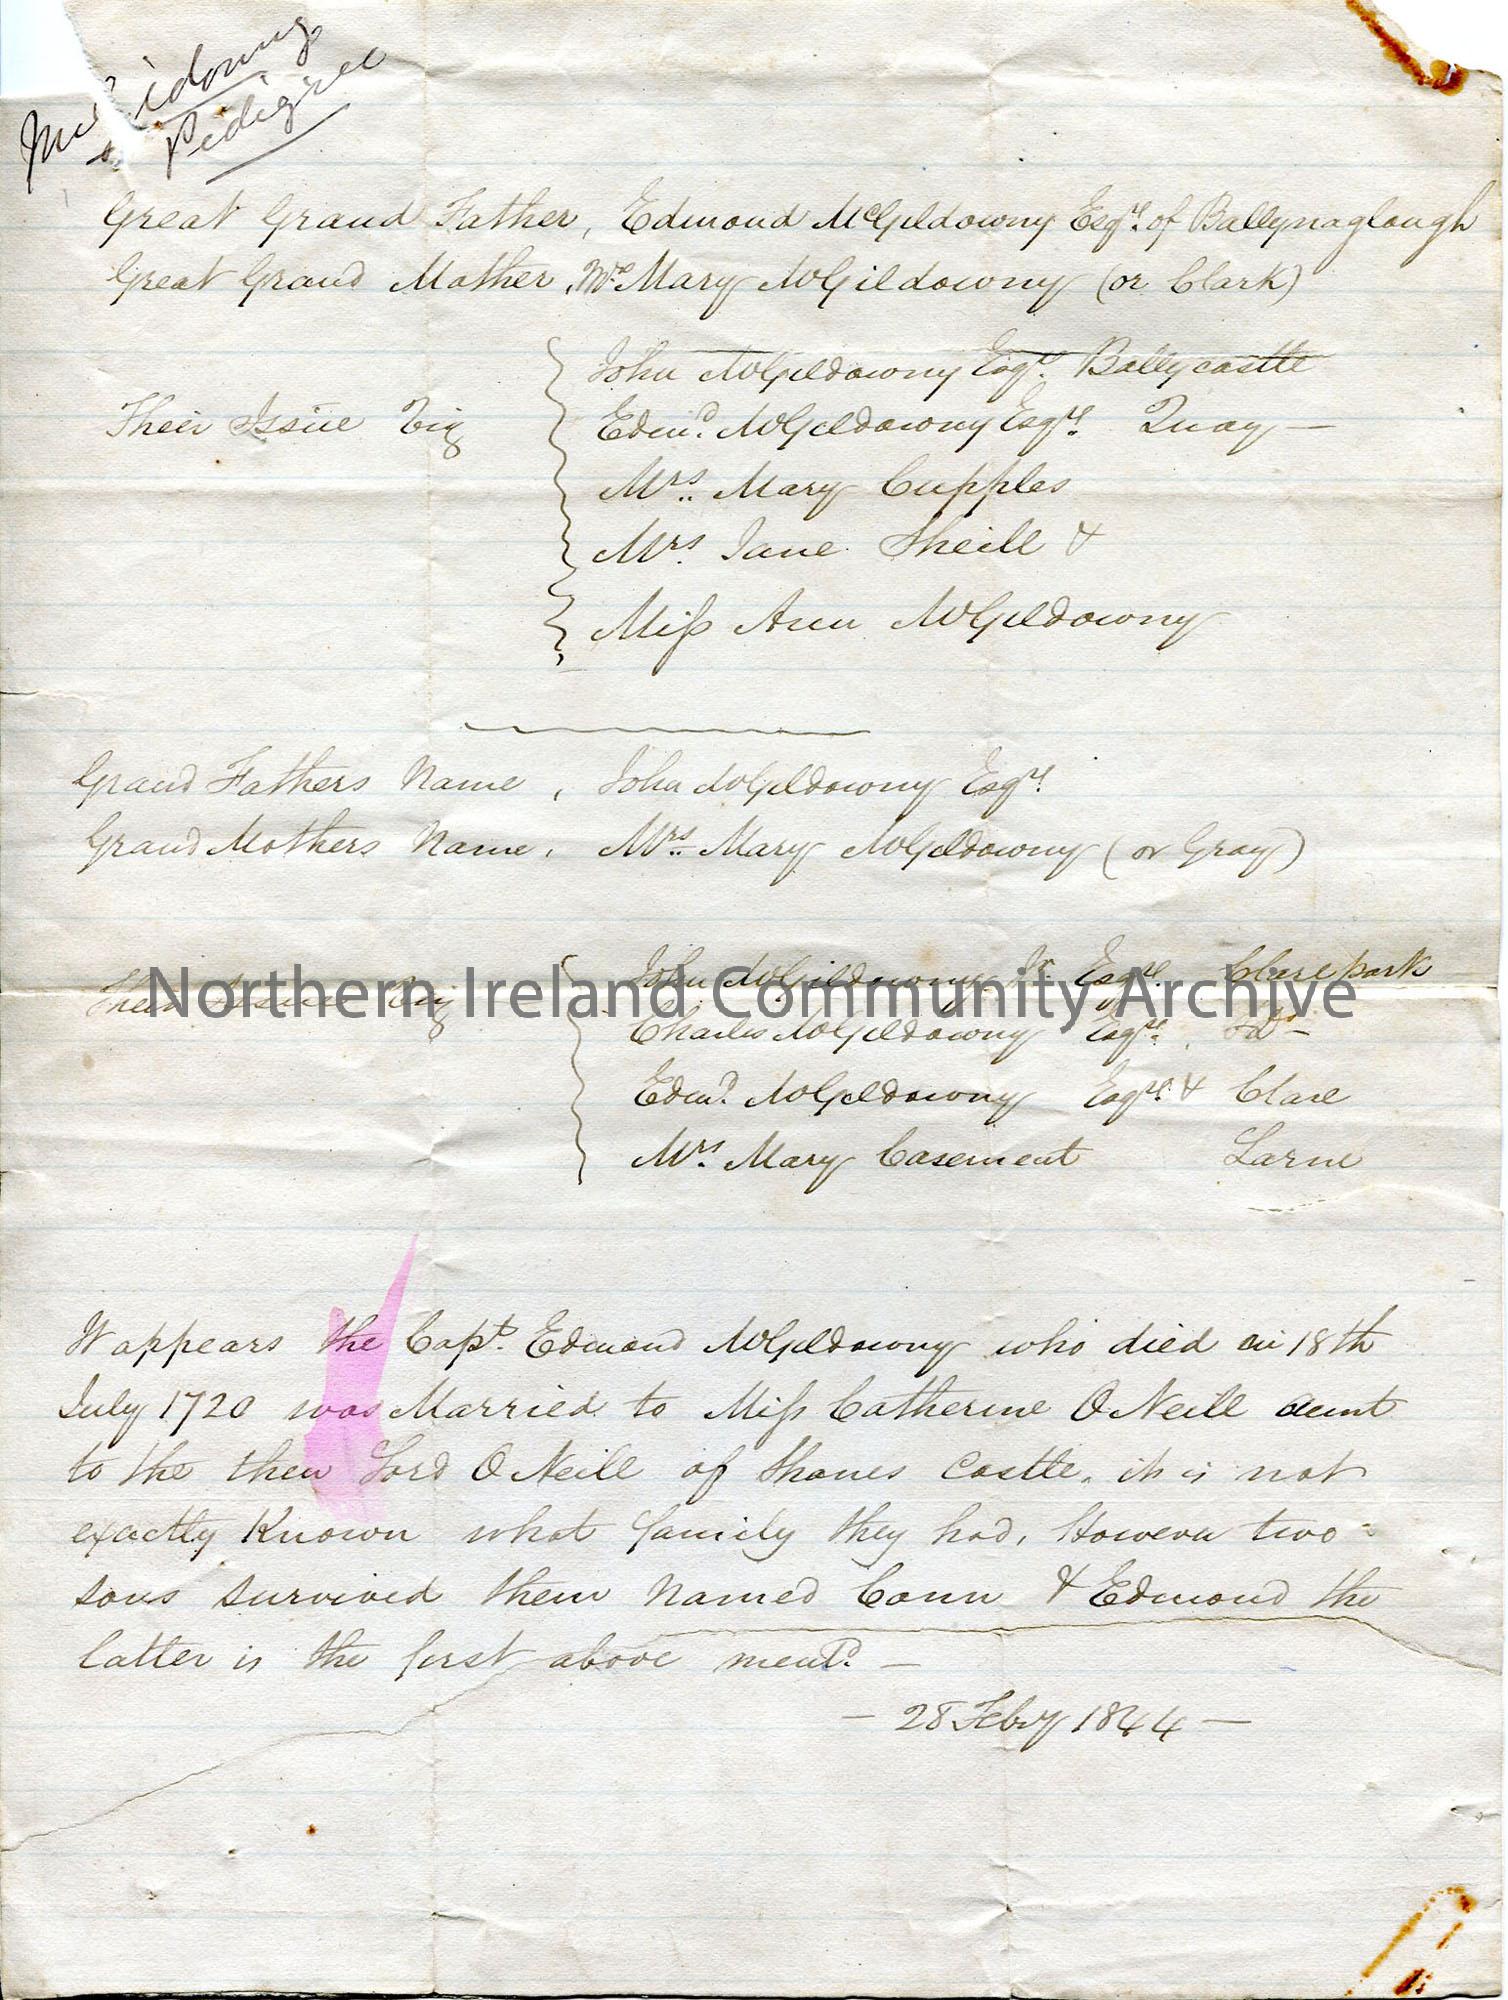 Pedigree
Great Grand Father, Edmond McGildowny Esqre. of Ballynaglough
Great Grand Mother, Mrs. Mary McGildowny (or Clark)
Their Issue Viz
John McGildowny Esqr. Ballycastle
Edmd. McGildowny Esqre. Quay —
Mrs. Mary Cupples
Mrs. Jane Sheill &
Miss Ann McGildowny
Grand Fathers Name, John McGildowny Esqre.
Grand Mothers Name, Mrs. Mary McGildowny (or Gray)
Their Issue Viz
John McGildowny Jr. Esqre. Clare park
Charles McGildowny Esqre. Do —
Edmd. McGildowny Esqre. & Clare
Mrs. Mary Casement Larne
It appears the Capt. Edmond McGildowny who died on 18th
July 1720 was Married to Miss Catherine O Neill aunt
to the then Lord O Neill of Shanes Castle. it is not
exactly Known what family they had, However two
sons survived them Named Conn & Edmond the
latter is the first above mentd. —
— 28 Febry 1844 —
Northern Ireland Community Archive